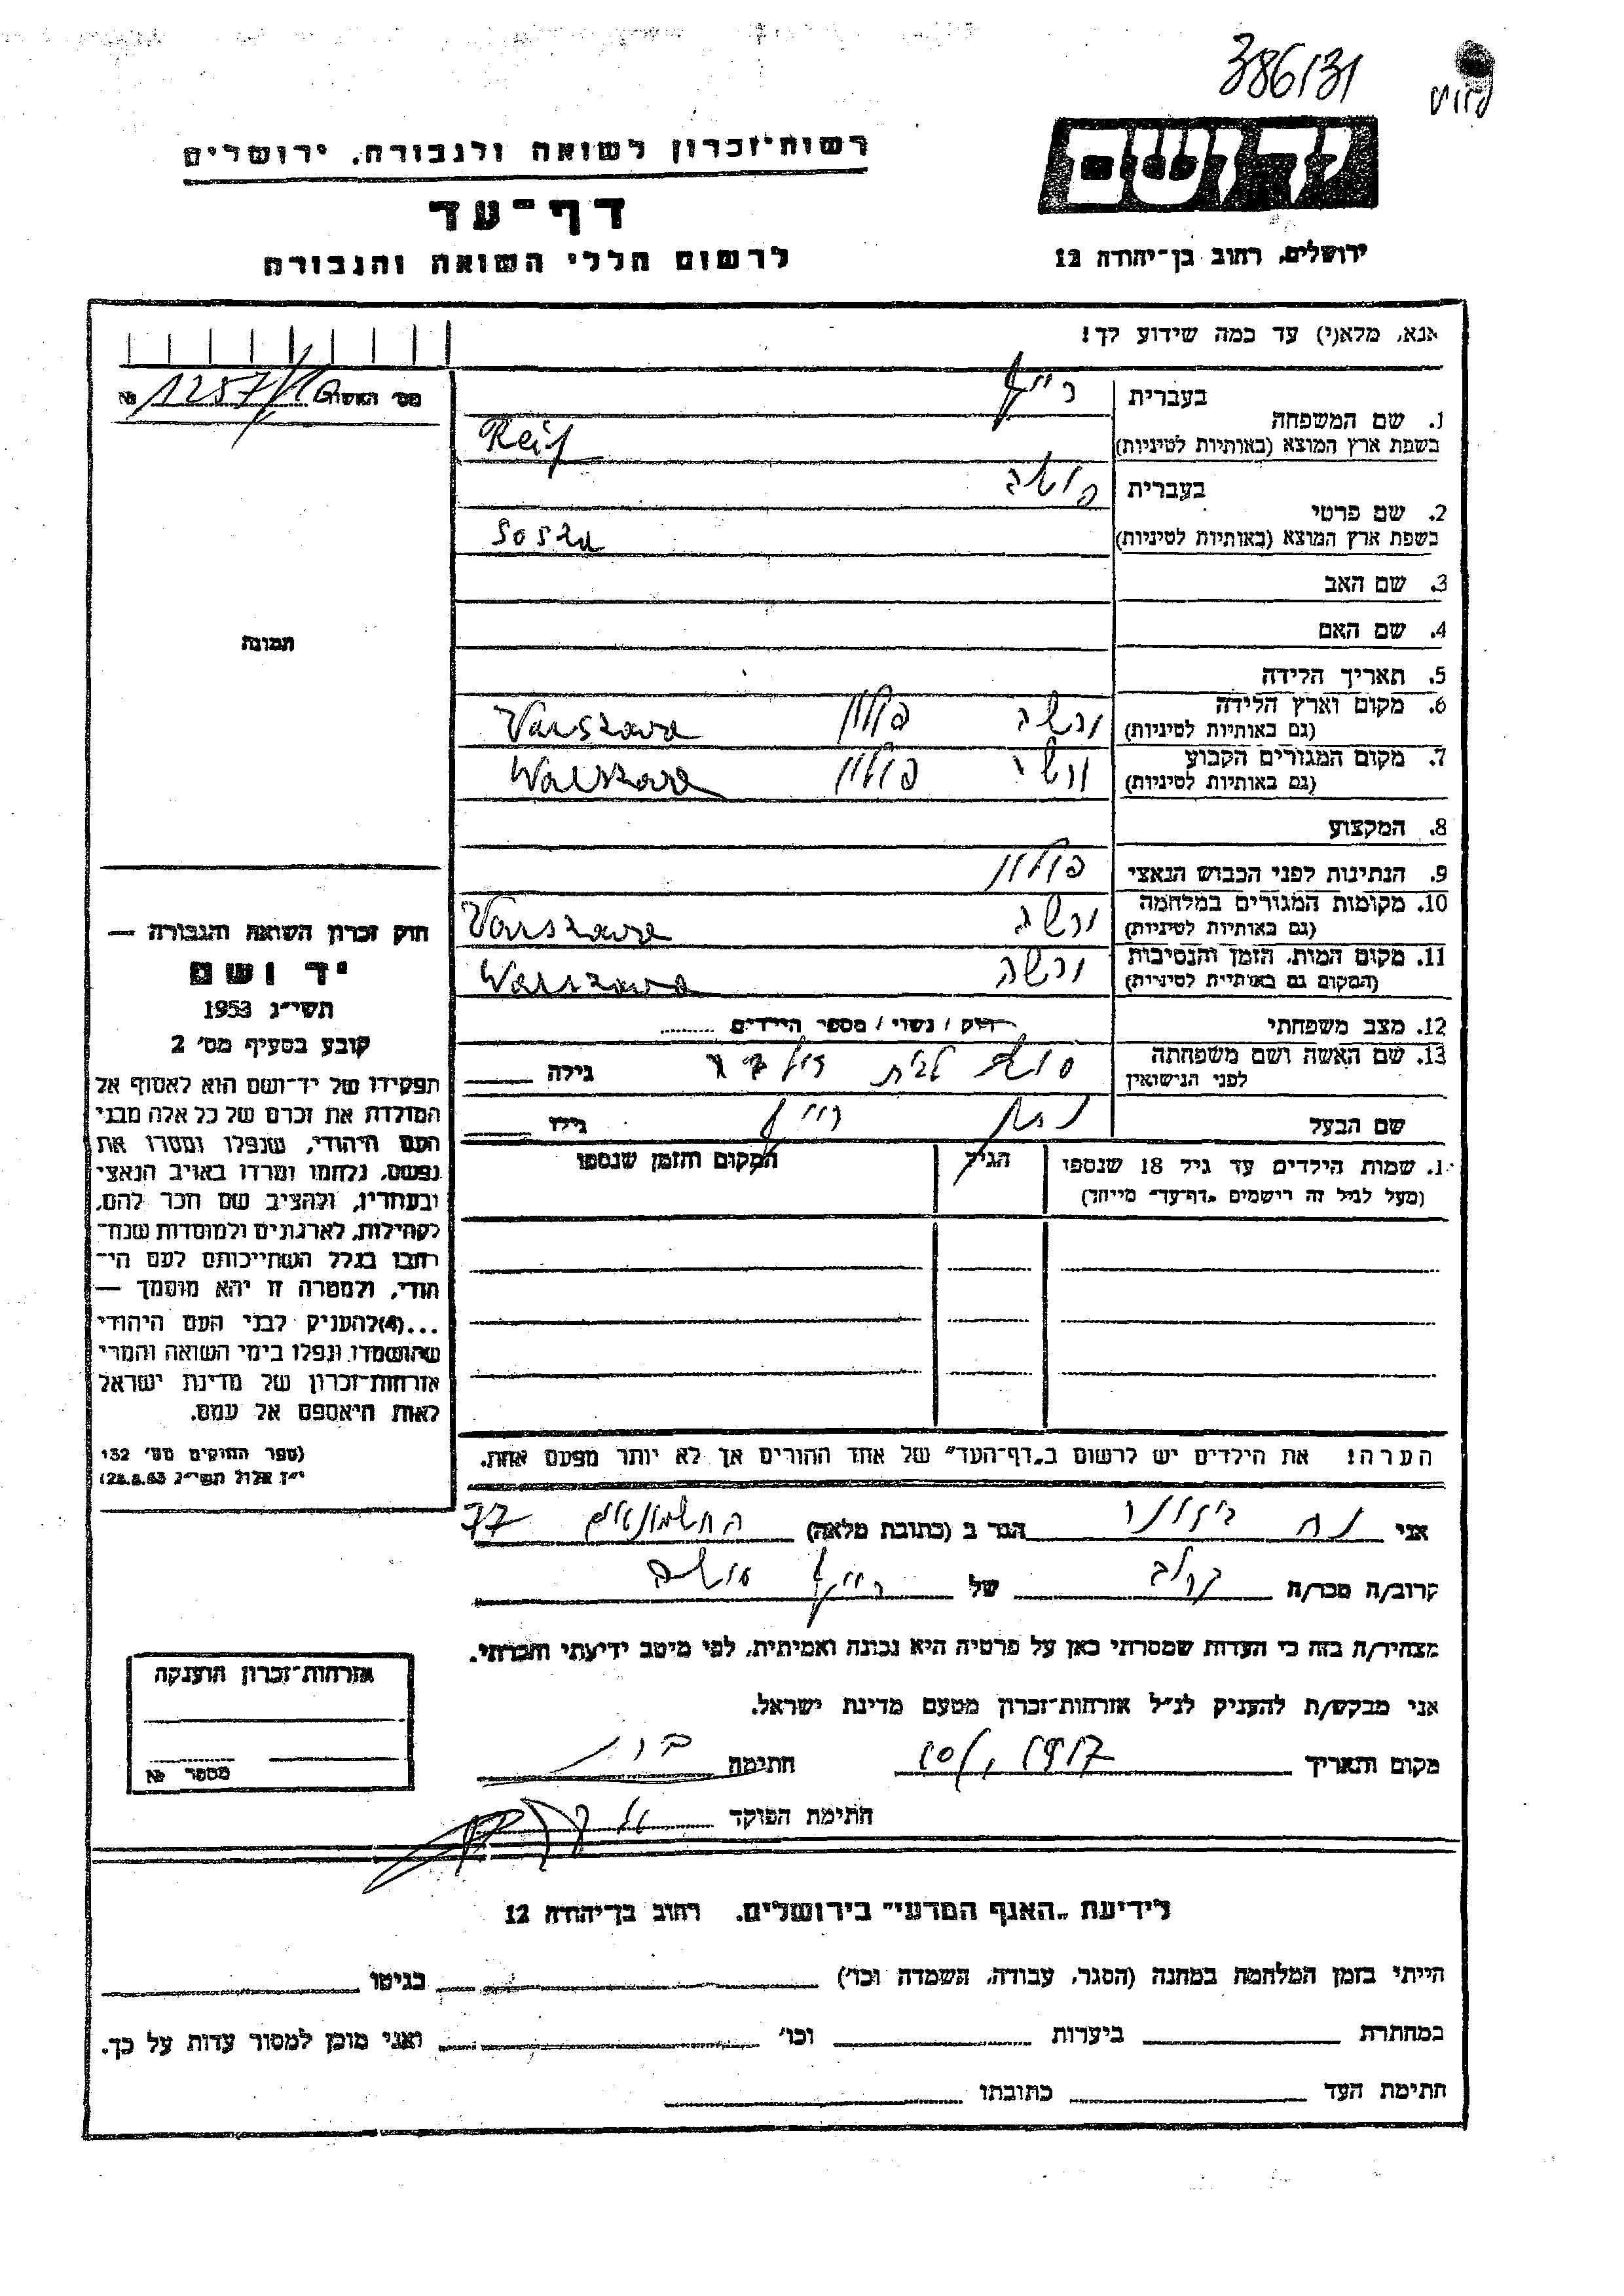 386/31
רשות־זכרון לשואה ולגבורה, ירושלים
יד ושם
דף־עד
לרשום חללי השואה והגבורה
ירושלים, רחוב בן־יהודה 12
אנא, מלא(י) עד כמה שידוע לך!
מס' האשה № 1257/
בעברית רייף
1. שם המשפחה
בשפת ארץ המוצא (באותיות לטיניות) Reif
בעברית סושה
2. שם פרטי
בשפת ארץ המוצא (באותיות לטיניות) Sosza
3. שם האב
4. שם האם
תמונה
5. תאריך הלידה
6. מקום וארץ הלידה ורשה פולין Varszawa
(גם באותיות לטיניות)
7. מקום המגורים הקבוע ורשה פולין Warszawa
(גם באותיות לטיניות)
8. המקצוע
9. הנתינות לפני הכבוש הנאצי פולין
10. מקומות המגורים במלחמה ורשה Varszawa
(גם באותיות לטיניות)
11. מקום המות, הזמן והנסיבות ורשה Warszawa
(המקום גם באותיות לטיניות)
12. מצב משפחתי רוק / נשוי / מספר הילדים
13. שם האשה ושם משפחתה סושה לבית גילה
לפני הנישואין
שם הבעל נתן רייף גילו
1. שמות הילדים עד גיל 18 שנספו הגיל המקום והזמן שנספו
(מעל לגיל זה רישמים "דף־עד" מייחד)
חוק זכרון השואה והגבורה —
יד ושם
תשי״ג 1953
קובע בסעיף מס' 2
תפקידו של יד־ושם הוא לאסוף אל
המולדת את זכרם של כל אלה מבני
העם היהודי, שנפלו ומסרו את
נפשם, נלחמו ומרדו באויב הנאצי
ובעוזריו, ולהציב שם וזכר להם,
לקהילות, לארגונים ולמוסדות שנח־
רבו בגלל השתייכותם לעם הי־
הודי, ולמטרה זו יהא מוסמך —
...(4)להעניק לבני העם היהודי
שהושמדו ונפלו בימי השואה והמרי
אזרחות־זכרון של מדינת ישראל
לאות היאספם אל עמם.
(ספר החוקים מס' 132
י״ז אלול תשי״ג 28.8.53)
הערה! את הילדים יש לרשום ב"דף־העד" של אחד ההורים אך לא יותר מפעם אחת.
אני נח הגר ב (כתובת מלאה) החשמונאים 77
קרוב/ה מכר/ה קרוב של רייף סושה
מצהיר/ה בזה כי העדות שמסרתי כאן על פרטיה היא נכונה ואמיתית, לפי מיטב ידיעתי והכרתי.
אני מבקש/ת להעניק לנ״ל אזרחות־זכרון מטעם מדינת ישראל.
מקום ותאריך חתימה
חתימת הפוקד
אזרחות־זכרון הוענקה
מספר №
לידיעת "האגף המדעי" בירושלים. רחוב בן־יהודה 12
הייתי בזמן המלחמה במחנה (הסגר, עבודה, השמדה וכו') בגיטו
במחתרת ביערות וכו' ואני מוכן למסור עדות על כך.
חתימת העד כתובתו